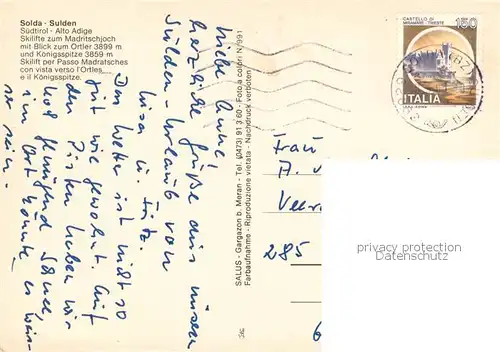 Solda - Sulden
Südtirol - Alto Adige
Skilifte zum Madritschjoch
mit Blick zum Ortler 3899 m
und Königsspitze 3859 m
Skilift per Passo Madratsches
con vista verso l'Ortles
e il Königsspitze.
Liebe Anne!
herzliche Grüße aus unserem
Sulden-Urlaub von
Luisa u. Fritz.
Das Wetter ist nicht so
gut wie gewohnt. Auf
den Pisten haben wir
noch genügend Schnee,
im Ort könnte es weis-
ser sein.
SALUS - Gargazon b. Meran - Tel. (0473) 91 3 60 - Foto a colori N/991
Farbaufnahme - Riproduzione vietata - Nachdruck verboten
CASTELLO DI
MIRAMARE TRIESTE
150
ITALIA
Frau
A. v
285
6
privacy protection
VEREDARIUS.COM